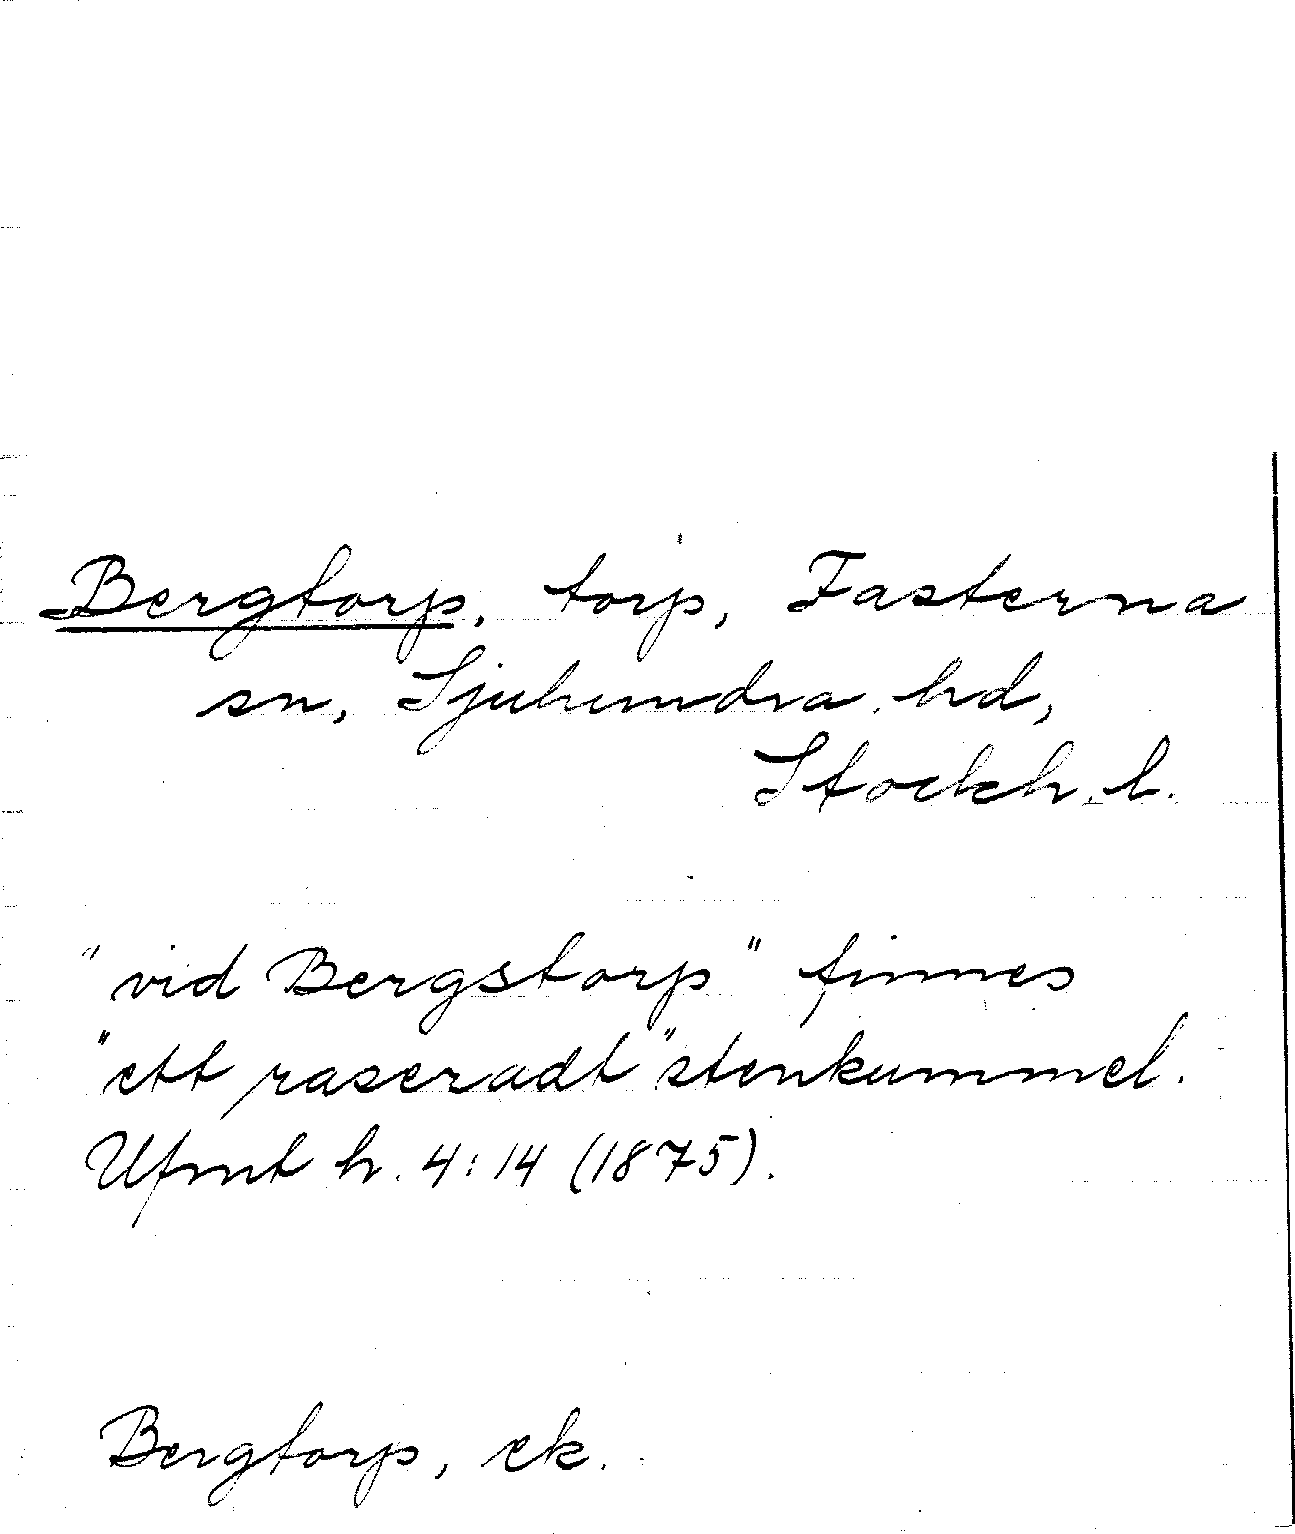 Bergtorp, torp, Fasterna
sn, Sjuhundra hd,
Stockh. l.
"vid Bergstorp" finnes
"ett raseradt" stenkummel.
Ufmt h. 4:14 (1875).
Bergtorp, ek.